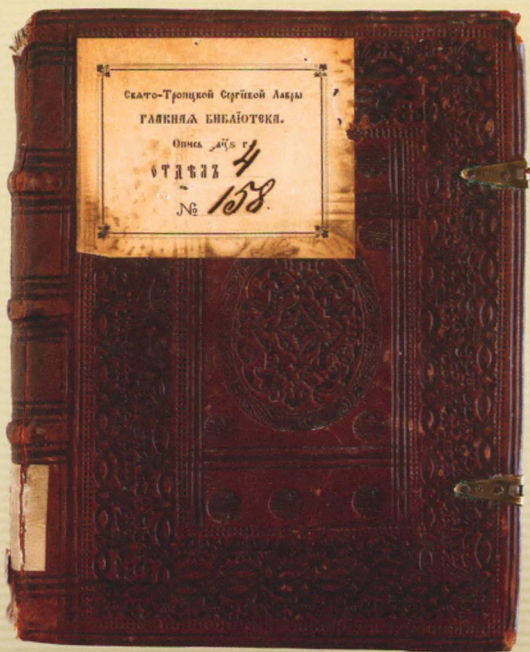 Свѧто-Троицкой Сергіевой Лавры
ГЛАВНАѦ БИБЛІОТЕКА.
Опись г.
ОТДѢЛЪ 4
№ 158.